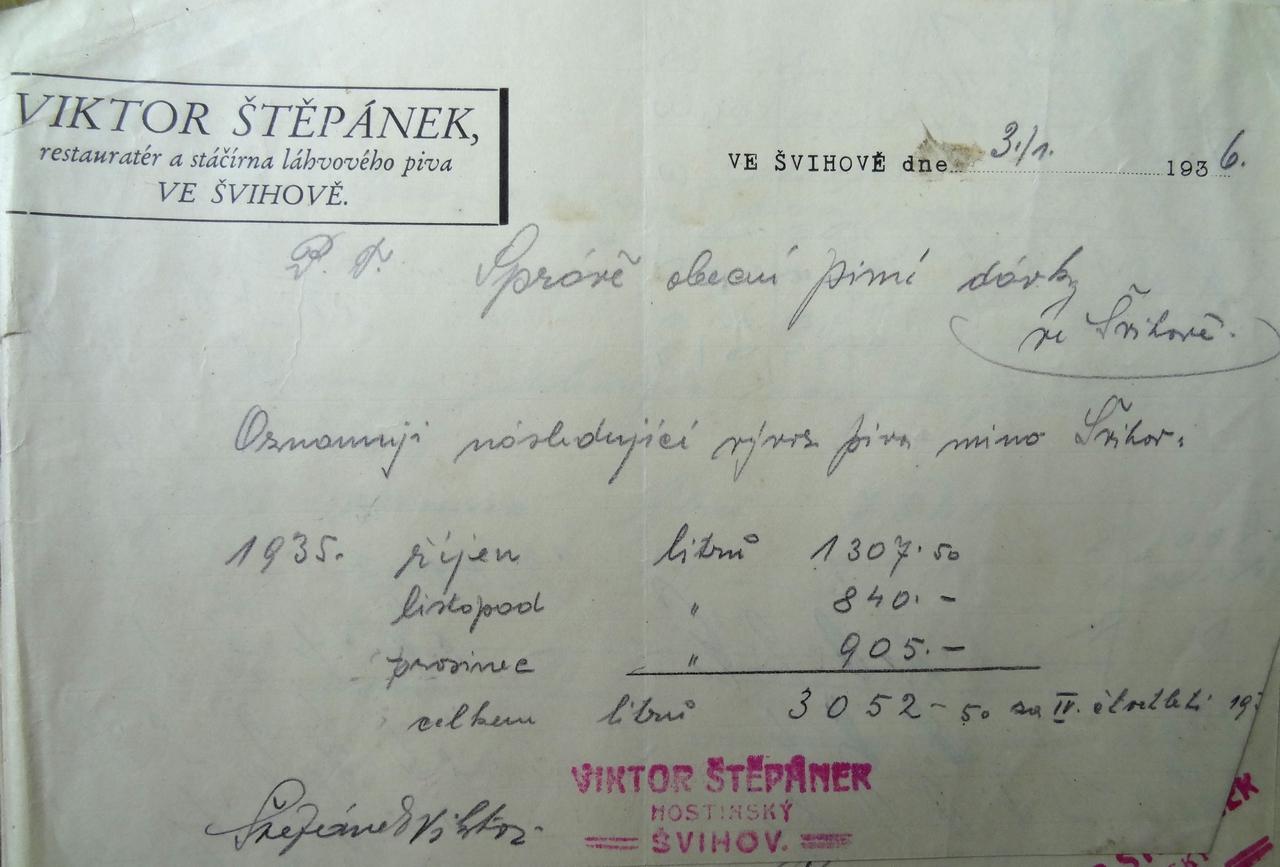 VIKTOR ŠTĚPÁNEK,
restauratér a stáčírna láhvového piva
VE ŠVIHOVĚ.
VE ŠVIHOVĚ dne 3./1. 1936.
P. T. Správě obecní pivní dávky
ve Švihově.
Oznamuji následující vývoz piva mimo Švihov:
1935. říjen litrů 1307.50
listopad " 840.-
prosinec " 905.-
celkem litrů 3052-50 za IV. čtvrtletí 19
VIKTOR ŠTĚPÁNEK
HOSTINSKÝ
ŠVIHOV.
Štěpánek Viktor.